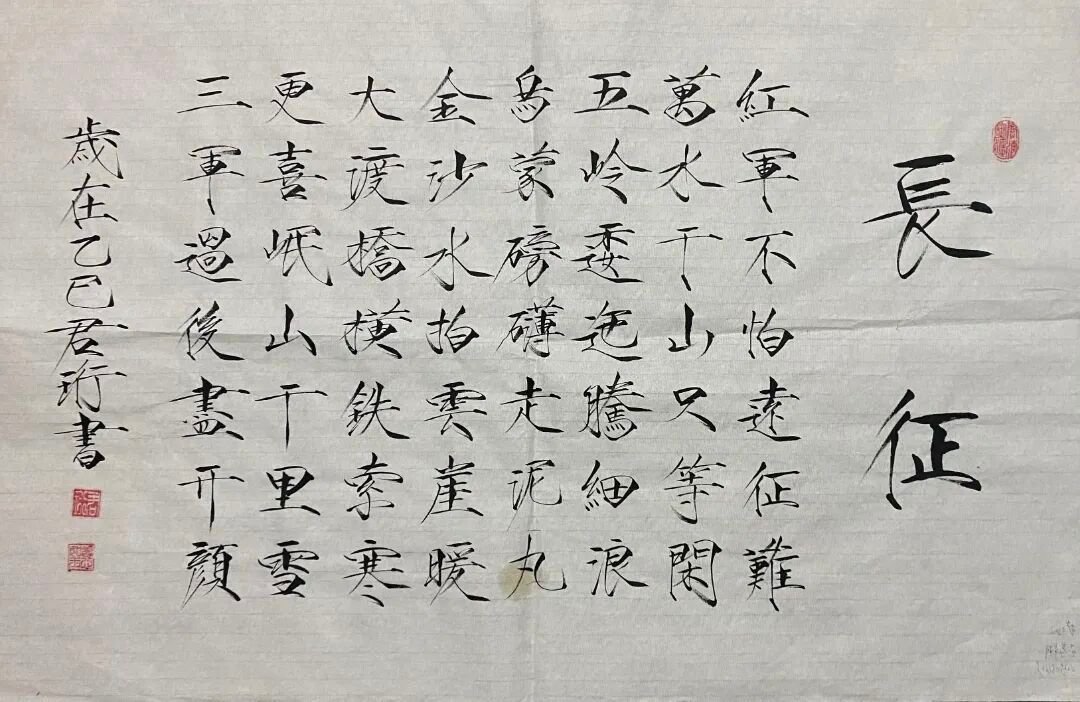 長征
紅軍不怕遠征難
萬水千山只等閑
五岭逶迤騰細浪
烏蒙磅礴走泥丸
金沙水拍雲崖暖
大渡橋橫鉄索寒
更喜岷山千里雪
三軍過後盡开顏
歲在乙巳君珩書